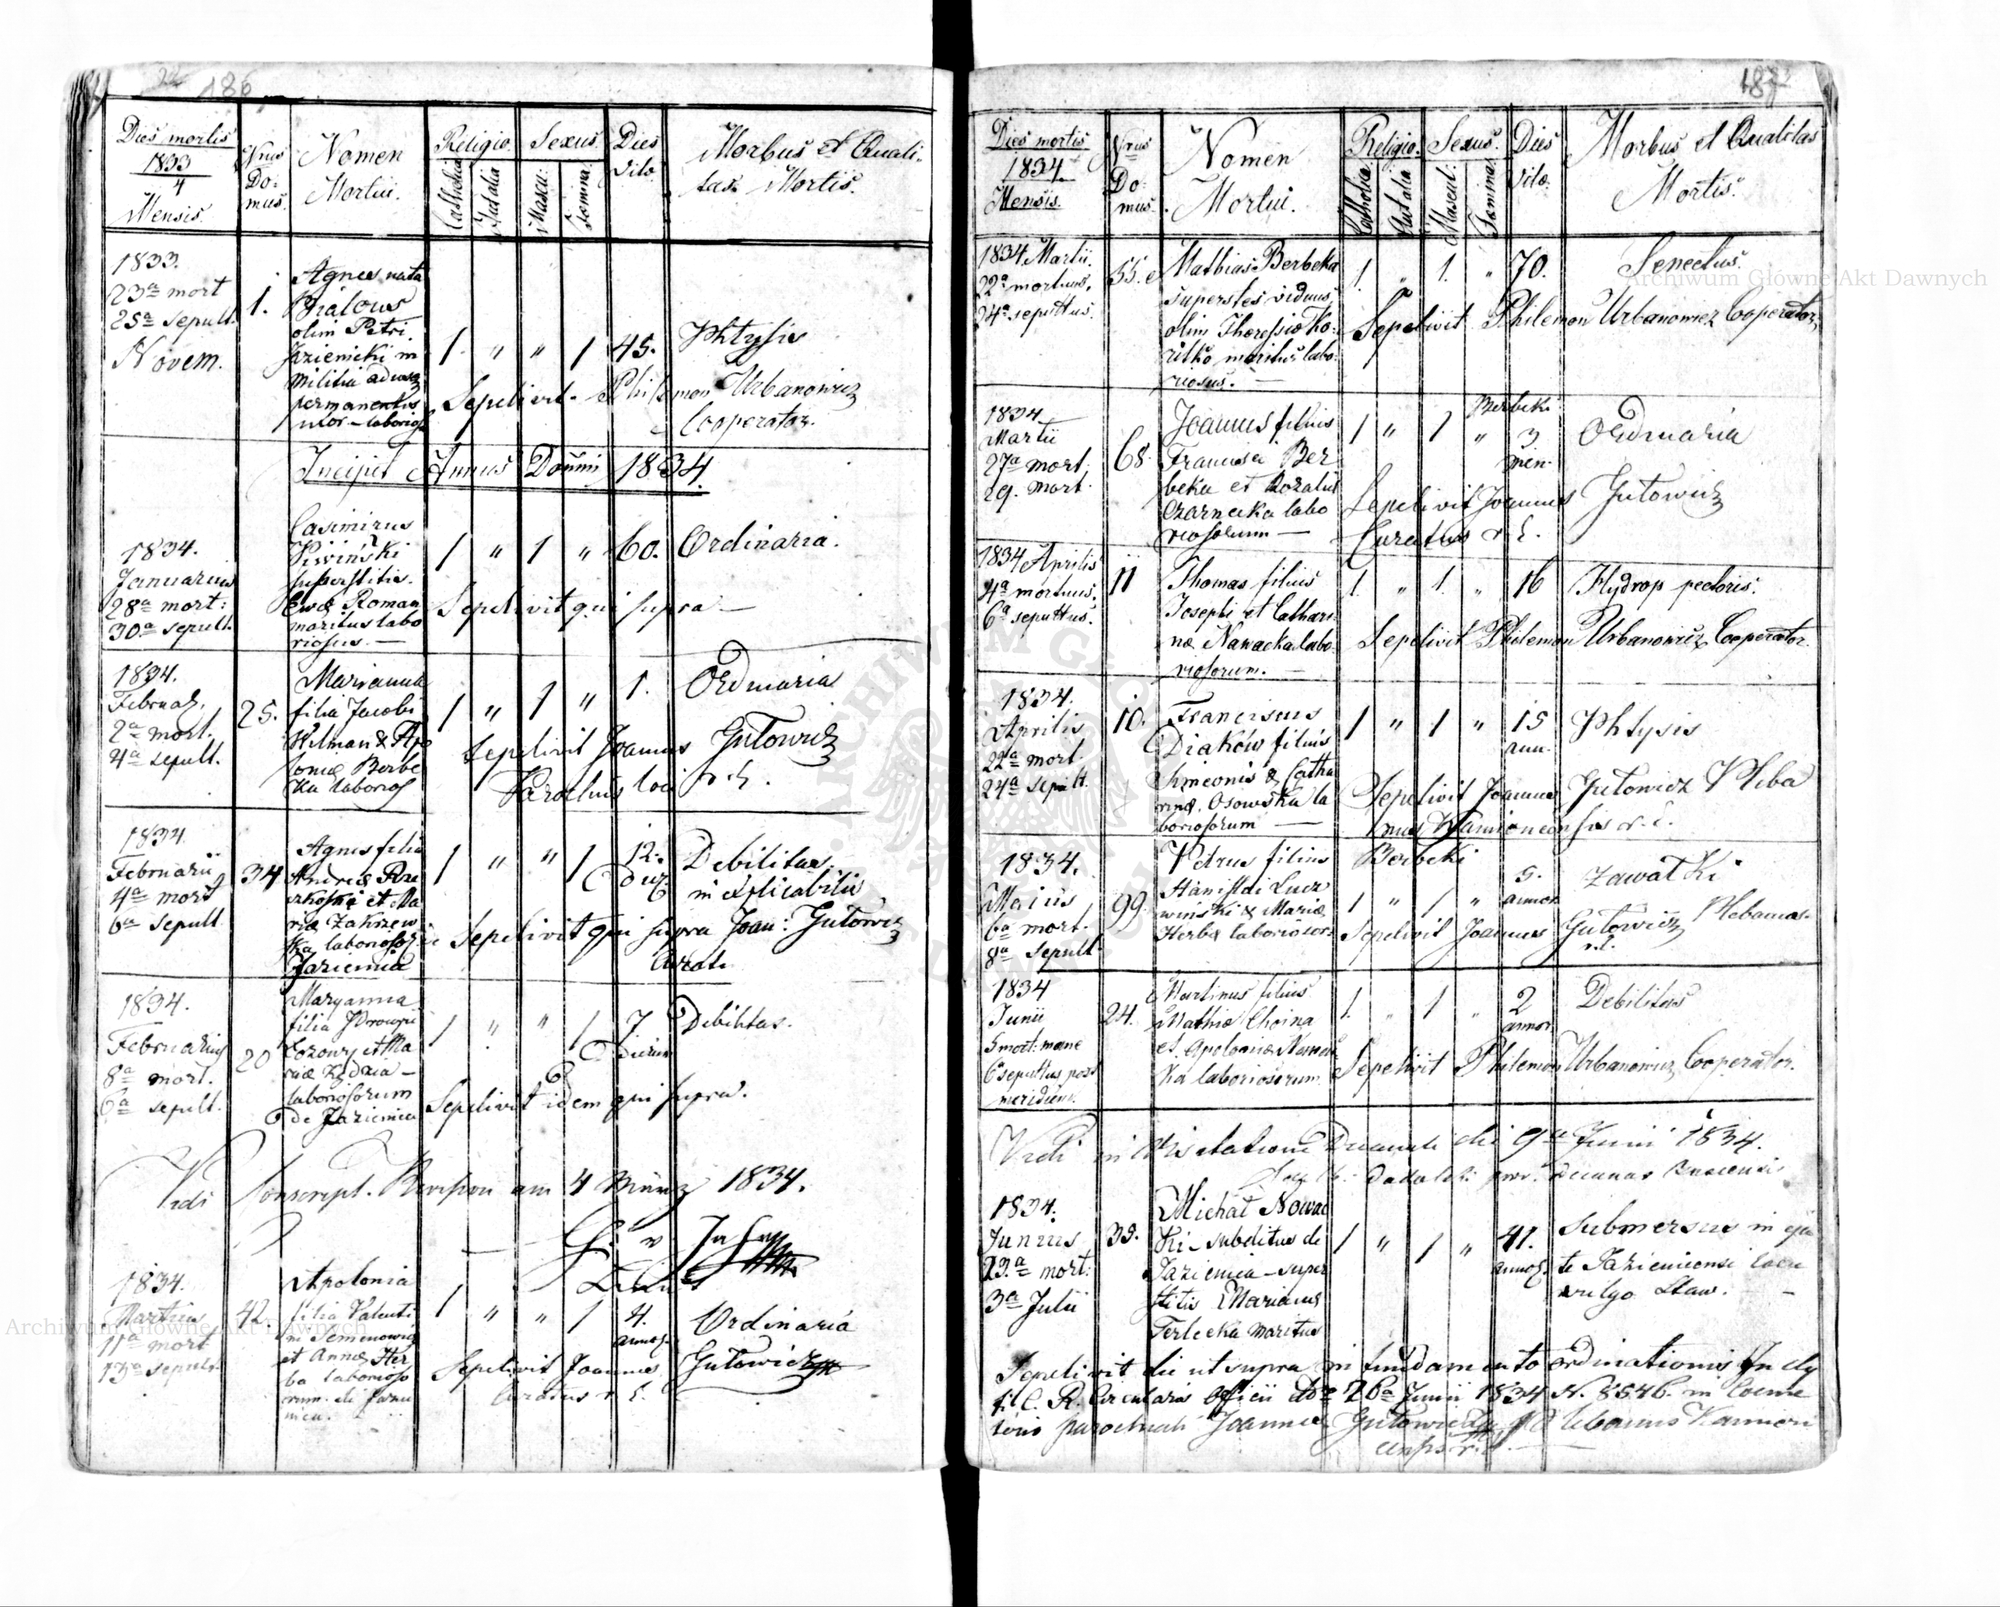 186
Dies mortis
1833
4
Mensis.
Nrus
Do:
mus.
Nomen
Mortui.
Religio.
Catholica
Sexus.
Mascu:
Femina
Dies
Vitæ
Morbus et Quali-
tas Mortis.
1833.
23a mort
25a sepult.
Novem.
1.
Agnes nata
olim Petri
Jazienicki in
militia
permanentis
uxor – laborios
1 " " 1 45. Phtysis
Sepelivit Philemon Urbanowicz
Cooperator.
Incipit Annus Domini 1834.
1834.
Januarius
28a mort:
30a sepult.
Casimirus
Kiwiński
superstitis
Ewæ Roman
maritus labo
riosus. —
1 " 1 " 60. Ordinaria.
Sepelivit qui supra —
1834.
Februar.
2a mort.
4a sepult.
25.
Marianna
filia Jacobi
Hilman & Apo
loniæ Berbe
ka laborios
1 " 1 " 1. Ordinaria
Sepelivit Joannes Gutowicz
Parochus loci
1834.
Februarii
4a mort
6a sepult
34
Agnes filia
Andreæ
et Ma
riæ Zakrzew
ka laboriosor
Jazienica
1 " " 1 12. Debilitas
in explicabilis
Sepelivit qui supra Joan: Gutowicz
Curat.
1834.
Februarius
8a mort.
6a sepult.
20
Maryanna
filia
et Ma
riæ
laboriosorum
de Jazienica
1 " " 1 7 Debilitas.
dierum
Sepelivit idem qui supra.
Vidi Conscript. Revision am 4 März 1834.
1834.
Martius
11a mort
13a sepult
42.
Apolonia
filia Valenti
ni Semenowicz
et Annæ Her
ba laborioso
rum de Jazie
nica.
1 " " 1 4. Ordinaria
annor.
Sepelivit Joannes Gutowicz
Curatus
187
Dies mortis
1834.
Mensis.
Nrus
Do:
mus.
Nomen
Mortui.
Religio.
Catholica
Sexus.
Mascul:
Femina
Dies
Vitæ.
Morbus et Qualitas
Mortis.
1834 Martii.
22a mortuus.
24a sepultus.
55.
Mathias Berbeka
superstes viduus
olim Theressiæ Ko-
ritko maritus labo-
riosus. —
1. " 1. " 70. Senectus.
Sepelivit Philemon Urbanowicz Cooperator.
1834
Martii
27a mort.
29. mort.
68.
Joannes filius
Francisci Ber
beka et Rozalia
Czarnecka labo
riosorum —
Berbeki
1 " 1 " 3 Ordinaria
men.
Sepelivit Joannes Gutowicz
Curatus
1834 Aprilis
4a mortuus.
6a sepultus.
11
Thomas filius
Josephi et Cathari
næ Nawacka labo-
riosorum. —
1. " 1. " 16 Hydrop pectoris.
Sepelivit Philemon Urbanowicz Cooperator.
1834.
Aprilis
22a mort.
24a sepult.
10.
Franciscus
Diaków filius
Simeonis & Catha
rinæ Osowska la
boriosorum —
1 " 1 " 15 Phtysis
ann.
Sepelivit Joannes Gutowicz Pleba
nus
1834.
Maius
6a mort.
8a sepult
99.
Petrus filius
Stanisłai Lucz
wiński & Mariæ
Herba laboriosor
Berbeki
5. Zawałki
1 " 1 " annor
Sepelivit Joannes Gutowicz Plebanus
1834
Junii
5 mort: mane
6 sepultus post
meridiem.
24.
Martinus filius
Mathiæ Choina
et Apoloniæ
ka laboriosorum
1. " 1 " 2 Debilitas
annor
Sepelivit Philemon Urbanowicz Cooperator.
Vidi in Visitatione Decanali die 9a Junii 1834.
1834.
Junius
23.a mort.
3a Julii
33.
Michał Nowac
ki – subditus de
Jazienica – super
stitis Mariannæ
Terlecka maritus
1 " 1 " 41. Submersus in
annor.
te Jazienicensi lacu
vulgo Staw. —
Sepelivit die ut supra in fundamento ordinationis Incly
ti C. R. Circularis Officii dto 26a Junii 1834 N. 8546. in Coeme
terio parochiali Joannes Gutowicz Plebanus Kamion
Archiwum Główne Akt Dawnych
Archiwum Główne Akt Dawnych